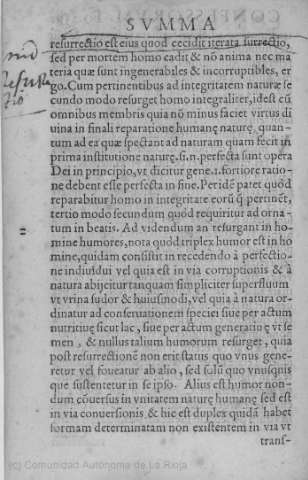 SVMMA
resurrectio est eius quod cecidit iterata surrectio,
sed per mortem homo cadit & nõ anima nec ma
teria quæ sunt ingenerabiles & incorruptibles, er
go. Cum pertinentibus ad integritatem naturæ se
cundo modo resurget homo integraliter, idest cũ
omnibus membris quia nõ minus faciet virtus di
uina in finali reparatione humanę naturę, quan-
tum ad ea quæ spectant ad naturam quam fecit in
prima institutione naturę. s. n. perfecta sunt opera
Dei in principio, vt dicitur gene. 1. fortiore ratio-
ne debent esse perfecta in fine. Per idẽ patet quòd
reparabitur homo in integritate eorũ q̃ pertinẽt,
tertio modo secundum quòd requiritur ad orna-
tum in beatis. Ad videndum an resurgant in ho-
mine humores, nota quòd triplex humor est in ho
mine, quidam consistit in recedendo à perfectio-
ne indiuidui vel quia est in via corruptionis & à
natura abijcitur tanquam simpliciter superfluum
vt vrina sudor & huiusmodi, vel quia à natura or-
dinatur ad conseruationem speciei siue per actum
nutritiuę sicut lac, siue per actum generatiuę vt se
men, & nullus talium humorum resurget, quia
post resurrectionẽ non erit status quo vnus gene-
retur vel foueatur ab alio, sed solũ quo vnusquis
que sustentetur in se ipso. Alius est humor non-
dum cõuersus in vnitatem naturę humanę sed est
in via conuersionis & hic est duplex quidã habet
formam determinatam non existentem in via vt
trans-
(c) Comunidad Autónoma de La Rioja